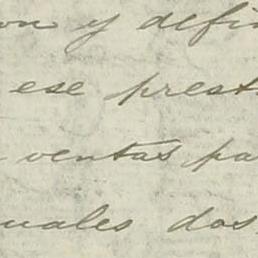 on y defin
ese prest
ventas pa
uales dos